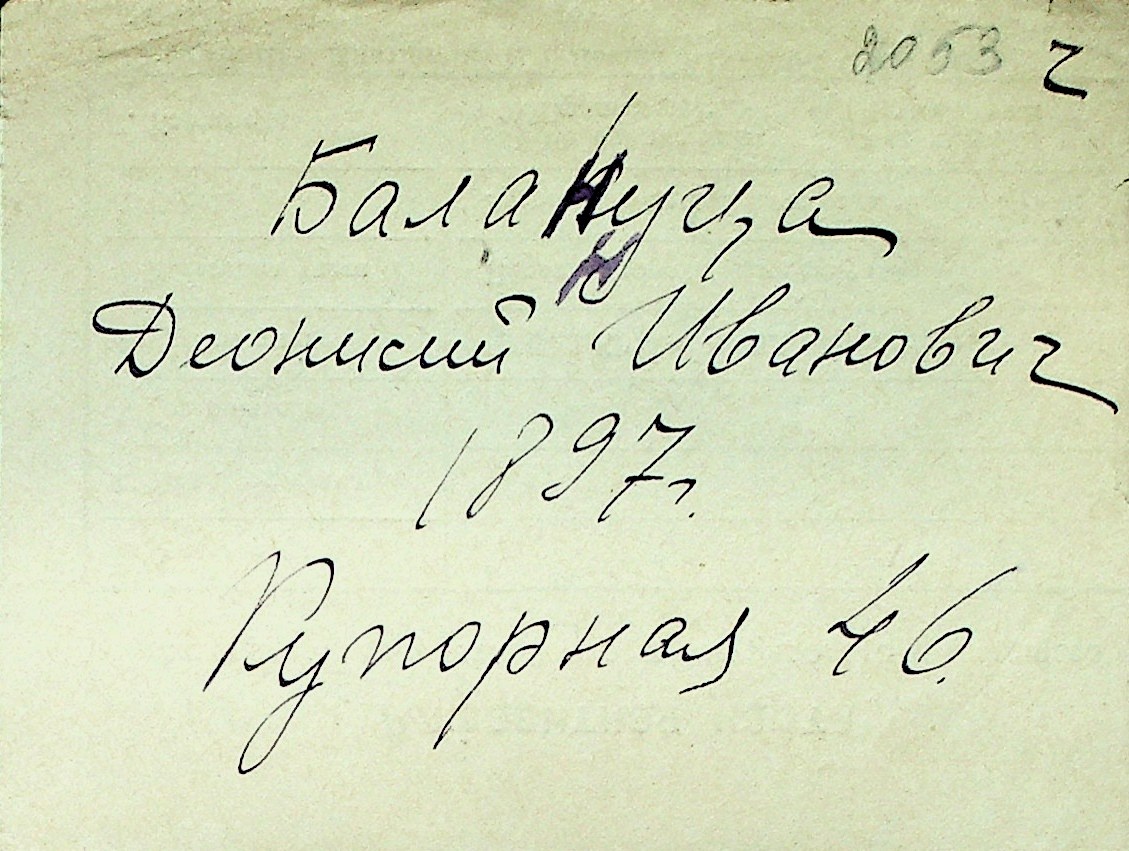 2053 ч
Балануца
н
Деонисий Иванович
1897г.
Купорная 46.